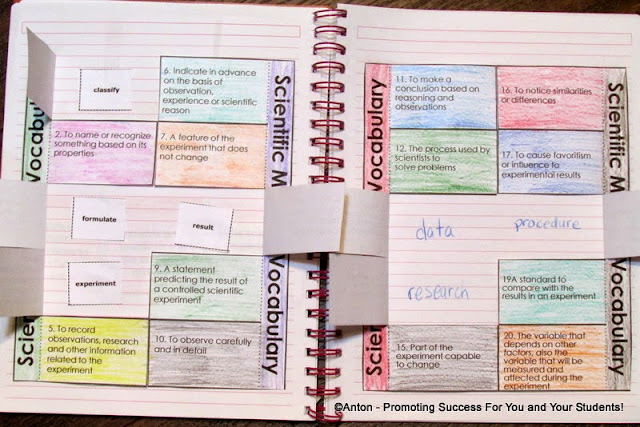 Vocabul
classify
6. Indicate in advance
on the basis of
observation,
experience or scientific
reason
Scientific M
2. To name or recognize
something based on its
properties
7. A feature of the
experiment that does
not change
formulate
result
experiment
9. A statement
predicting the result of
a controlled scientific
experiment
Scien
5. To record
observations, research
and other information
related to the
experiment
10. To observe carefully
and in detail
Vocabulary
Vocabulary
11. To make a
conclusion based on
reasoning and
observations
16. To notice similarities
or differences
Scientific M
12. The process used by
scientists to
solve problems
17. To cause favoritism
or influence to
experimental results
data
procedure
research
19A standard to
compare with the
results in an experiment
Scien
15. Part of the
experiment capable
to change
20. The variable that
depends on other
factors; also the
variable that will be
measured and
affected during the
experiment
Vocabulary
©Anton - Promoting Success For You and Your Students!